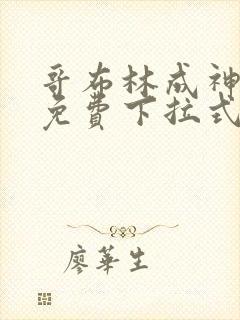 哥布林成神
免费下拉式
廖華生